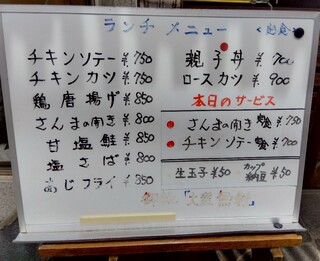 ランチ メニュー
チキンソテー ¥750
チキンカツ ¥750
鶏唐揚げ ¥850
さんまの開き ¥800
甘塩鮭 ¥850
塩さば ¥800
あじフライ ¥850
親子丼 ¥700
ロースカツ ¥900
本日のサービス
さんまの開き ¥750
チキンソテー ¥700
生玉子 ¥50 カップ納豆 ¥50